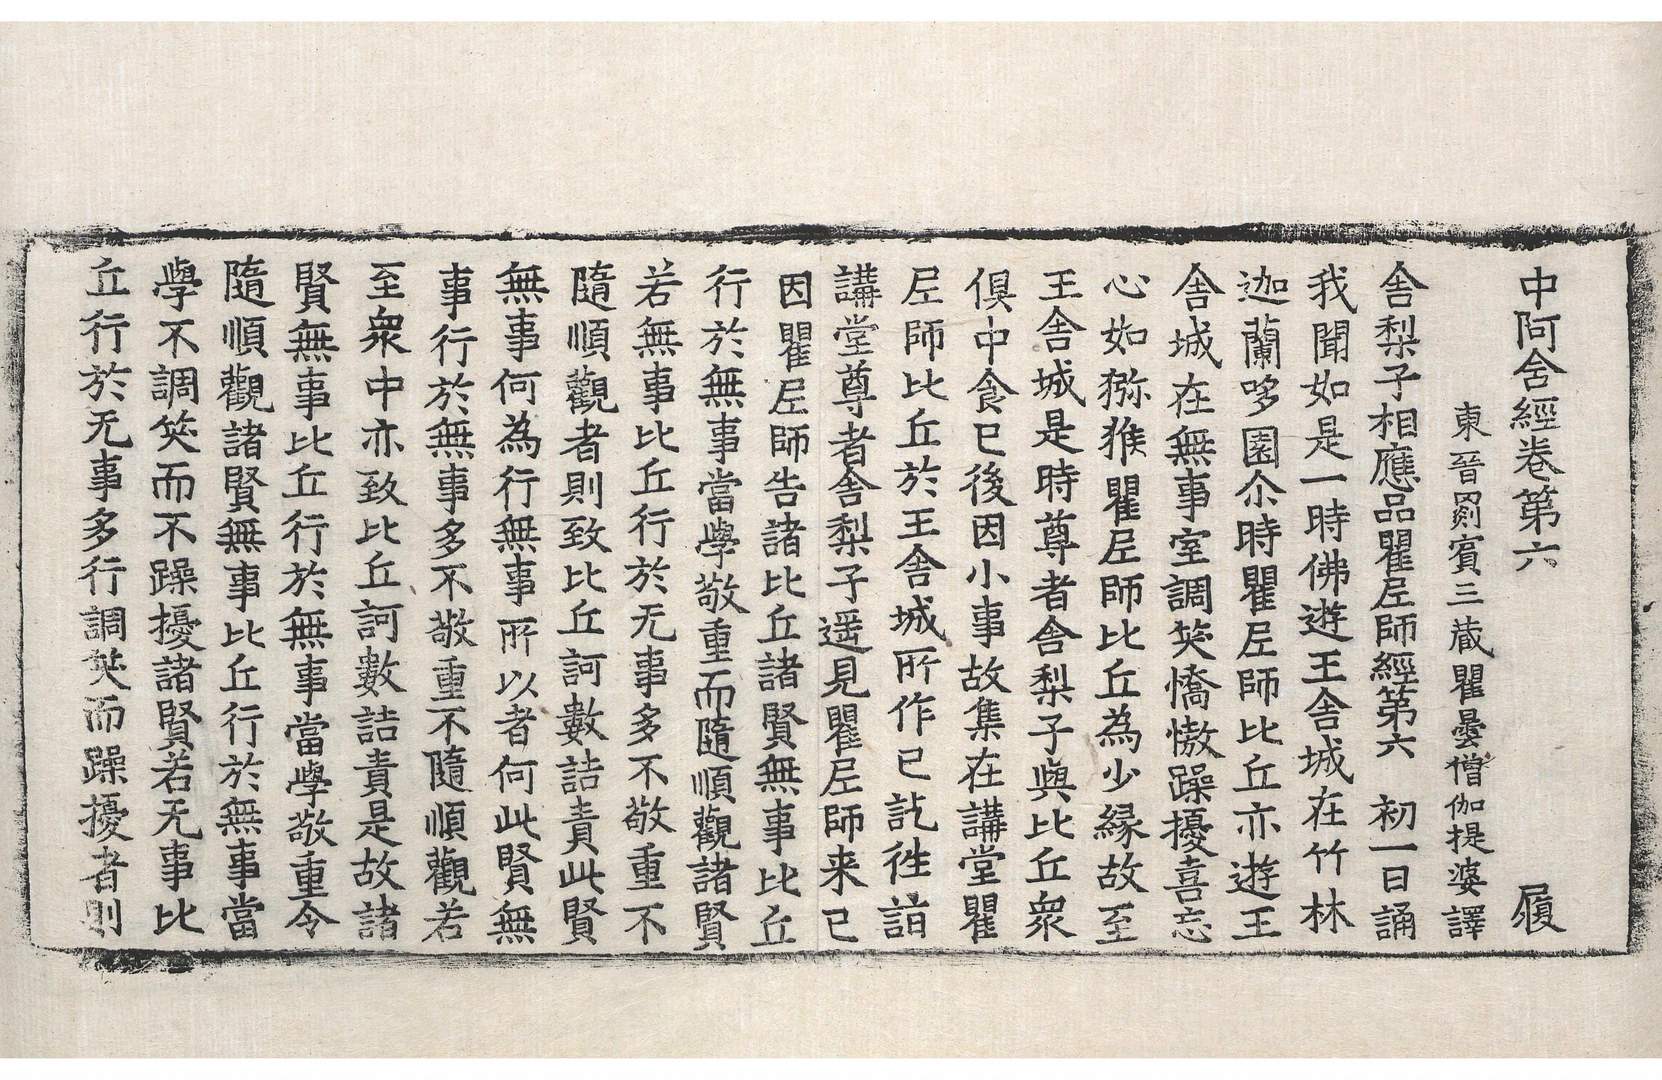 中阿含經卷第六 履
東晉罽賓三藏瞿曇僧伽提婆譯
舍梨子相應品瞿尼師經第六 初一日誦
我聞如是一時佛遊王舍城在竹林
迦蘭哆園尒時瞿尼師比丘亦遊王
舍城在無事室調笑憍慠躁擾喜忘
心如獼猴瞿尼師比丘為少縁故至
王舍城是時尊者舍梨子與比丘衆
俱中食已後因小事故集在講堂瞿
尼師比丘於王舍城所作已訖徃詣
講堂尊者舍梨子遥見瞿尼師来已
因瞿尼師告諸比丘諸賢無事比丘
行於無事當學敬重而隨順觀諸賢
若無事比丘行於无事多不敬重不
隨順觀者則致比丘訶數詰責此賢
無事何為行無事所以者何此賢無
事行於無事多不敬重不隨順觀若
至衆中亦致比丘訶數詰責是故諸
賢無事比丘行於無事當學敬重令
隨順觀諸賢無事比丘行於無事當
學不調笑而不躁擾諸賢若无事比
丘行於无事多行調笑而躁擾者則